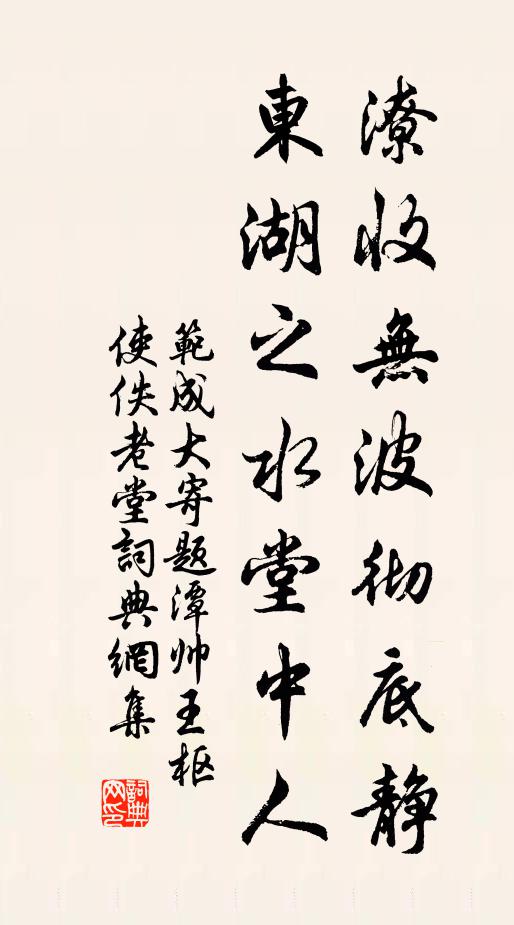 潦收無波彻底静
東湖之水堂中人
範成大寄题潭帅王枢
使佚老堂詞典網集
詞典网印